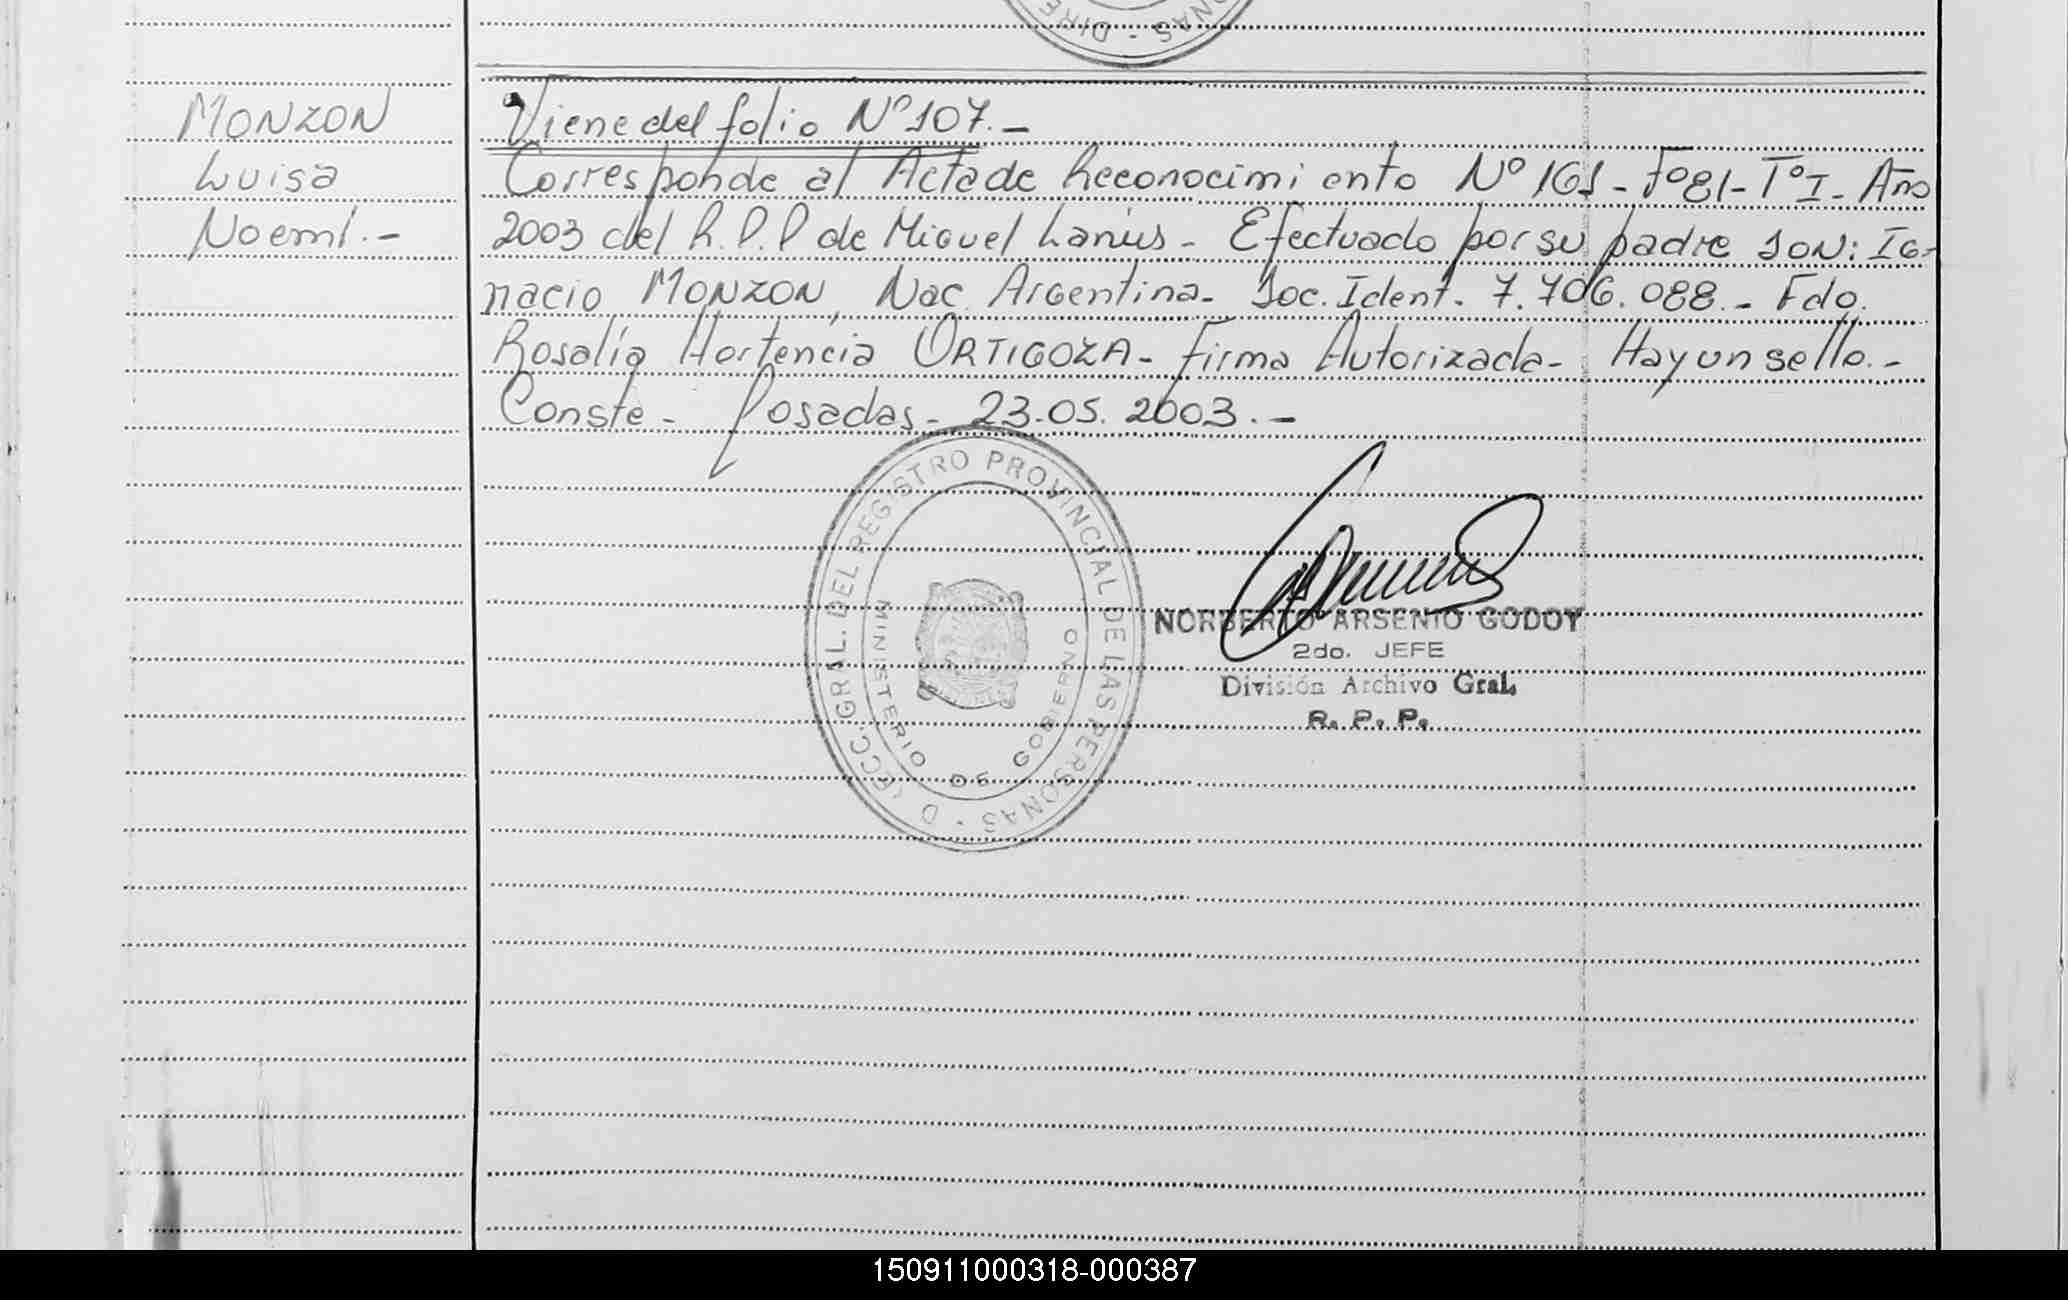 MONZON
Luisa
Noemí.-
Viene del folio Nº 107.-
Corresponde al Acta de Reconocimiento Nº 161-Fº81-TºI-Año
2003 del R.P.P de Miguel Lanús- Efectuado por su padre DON: IG-
nacio MONZON, Nac. Argentina- Doc. Ident. 7.706.088.- Fdo.
Rosalía Hortencia ORTIGOZA- Firma Autorizada- Hay un sello.-
Conste- Posadas- 23.05.2003.-
DIRECC. GRAL. DEL REGISTRO PROVINCIAL DE LAS PERSONAS
MINISTERIO DE GOBIERNO
NORBERTO ARSENIO GODOY
2do. JEFE
División Archivo Gral.
R. P. P.
150911000318-000387